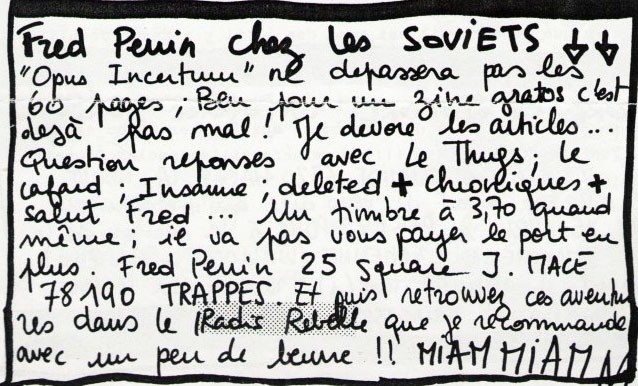 Fred Perrin chez les SOVIETS ↓ ↓
"Opus Incertum" ne depassera pas les
60 pages ; Ben pour un zine gratos c'est
dejà pas mal ! Je devore les articles ...
Question reponses avec Le Thugs ; le
cafard ; Insanne ; deleted + chroniques +
salut Fred ... Un timbre à 3,70 quand
même ; il va pas vous payer le port en
plus. Fred Perrin 25 square J. MACÉ
78190 TRAPPES. Et puis retrouvez ces aventu
res dans le Radis Rebelle que je recommande
avec un peu de beurre !! MIAM MIAM